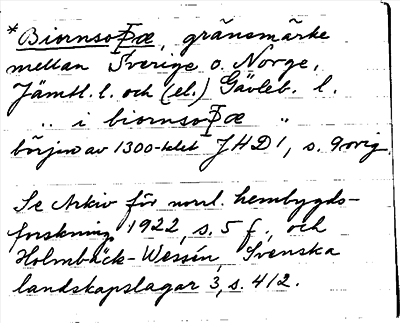 *Biornsoꝥæ, gränsmärke
mellan Sverige o. Norge,
Jämtl. l. och (el.) Gävleb. l.
„ i biornsoꝥæ „
början av 1300-talet JHD 1, s. 9 orig.
Se Arkiv för norrl. hembygds-
forskning 1922, s. 5 f., och
Holmbäck-Wessén, Svenska
landskapslagar 3, s. 412.